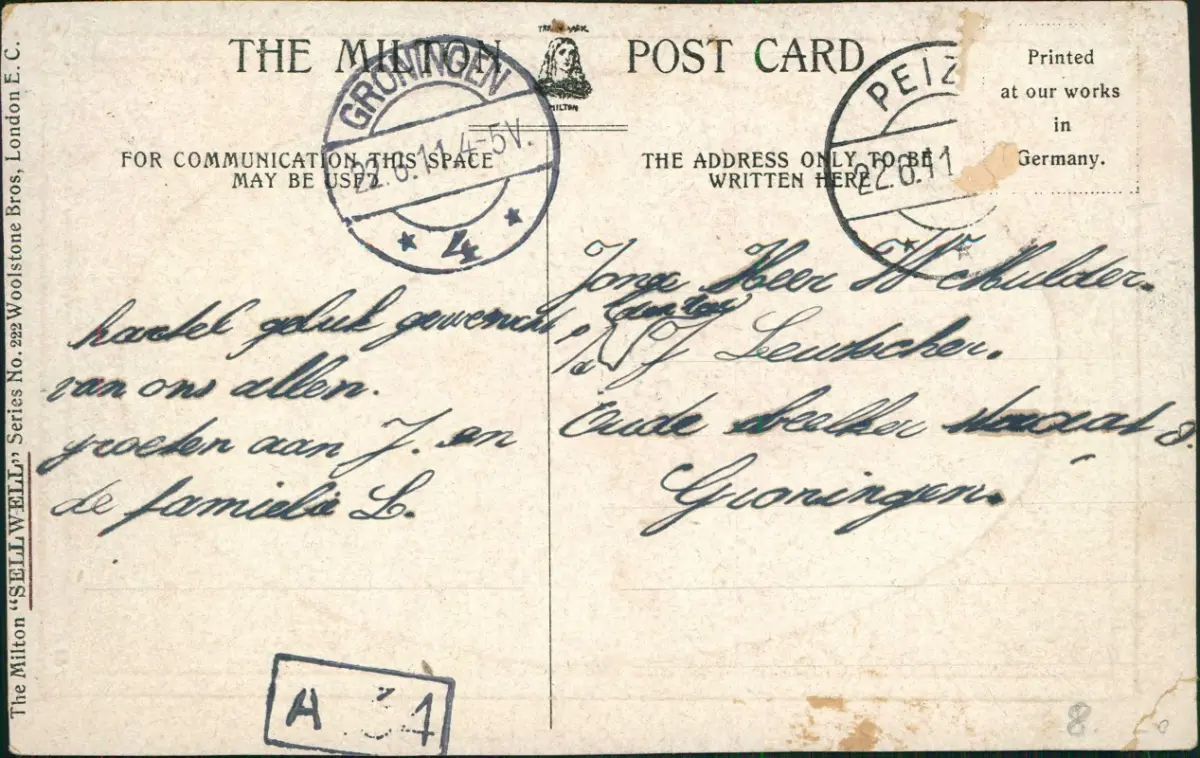 THE MILTON POST CARD
TRADE MARK.
MILTON
Printed
at our works
in
Germany.
FOR COMMUNICATION THIS SPACE
MAY BE USED
THE ADDRESS ONLY TO BE
WRITTEN HERE
GRONINGEN
22.6.11 4-5V.
4
PEIZ
22.6.11
hartel geluk gewenscht
van ons allen.
groeten aan J. en
de familie L.
Jonge Heer W Mulder.
J Leutscher.
Oude
Groningen.
A 31
8.
The Milton "SELLWELL" Series No. 222 Woolstone Bros, London E. C.